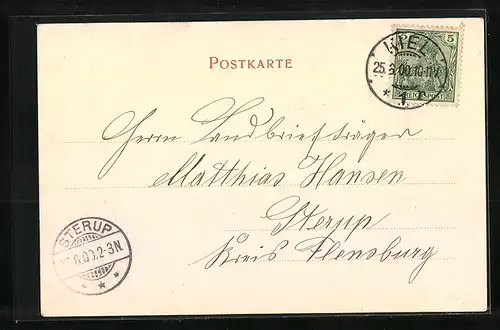 POSTKARTE
KIEL
25.6.00.10-11V.
* 1. f.
5
REICHSPOST
Herrn Landbriefträger
Matthias Hansen
Sterup
Kreis Flensburg
STERUP
6.00.2-3N.
* * *